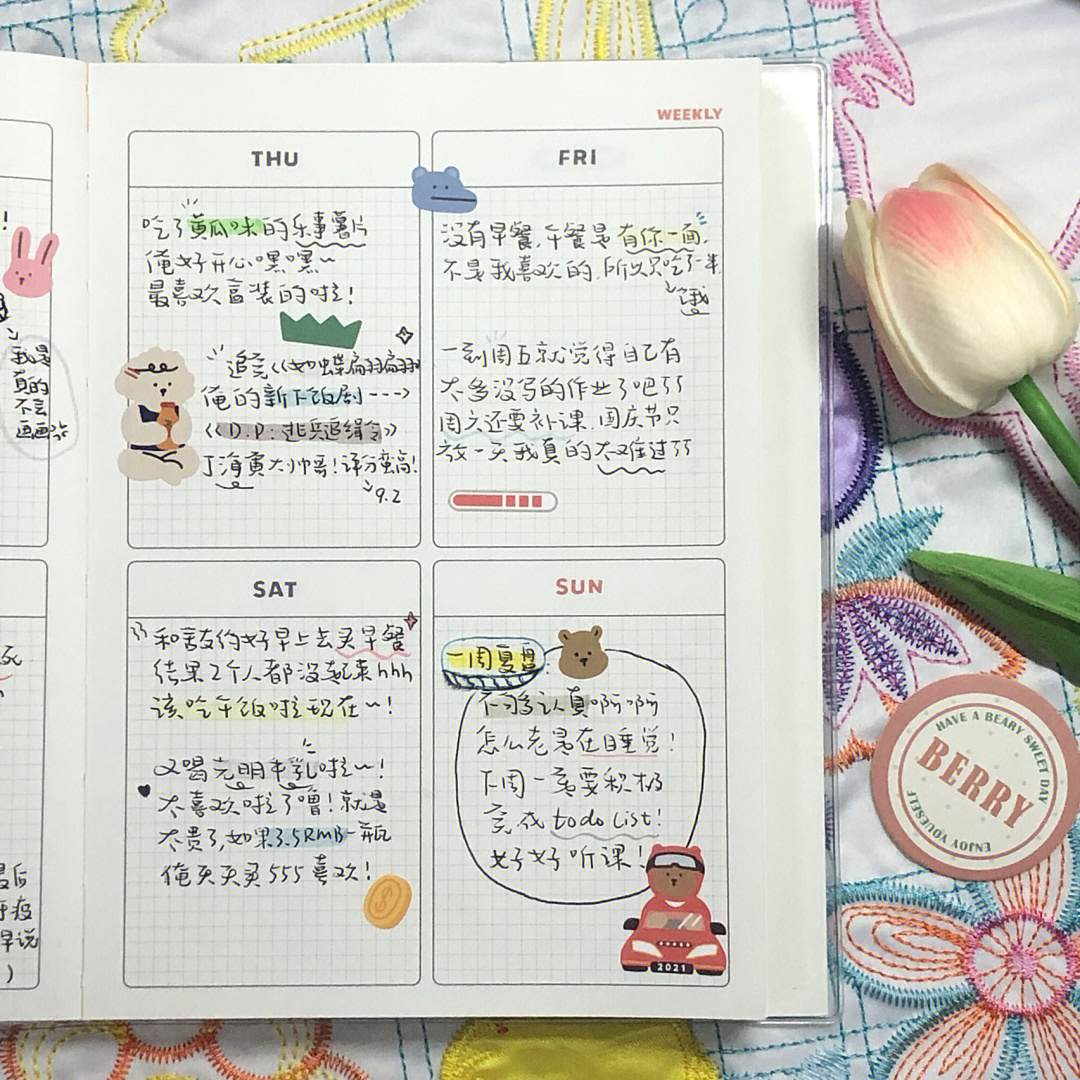 WEEKLY
THU
吃了黄瓜味的乐事薯片
俺好开心嘿嘿~
最喜欢盲装的啦!
追完《如蝶翩翩》
俺的新下饭剧--->
《D.P:逃兵追缉令》
丁海寅大帅哥!评分蛮高!
9.2
FRI
没有早餐,午餐是有你一面,
不是我喜欢的,所以只吃了一半
饿
一到周五就觉得自己有
太多没写的作业了吧
周六还要补课,国庆节只
放一天我真的太难过了
SAT
和舍友约好早上去买早餐
结果2个人都没起来hhh
该吃午饭啦现在~!
又喝光明牛乳啦~!
太喜欢啦了噜!就是
太贵了,如果3.5RMB一瓶
俺天天买555喜欢!
SUN
一周复盘:
不够认真啊啊啊
怎么老是在睡觉!
下周一定要积极
完成todo list!
好好听课!
2021
!
我是
真的
不会
画画
死
最后
早说
)
HAVE A BEARY SWEET DAY
BERRY
ENJOY YOUESELF